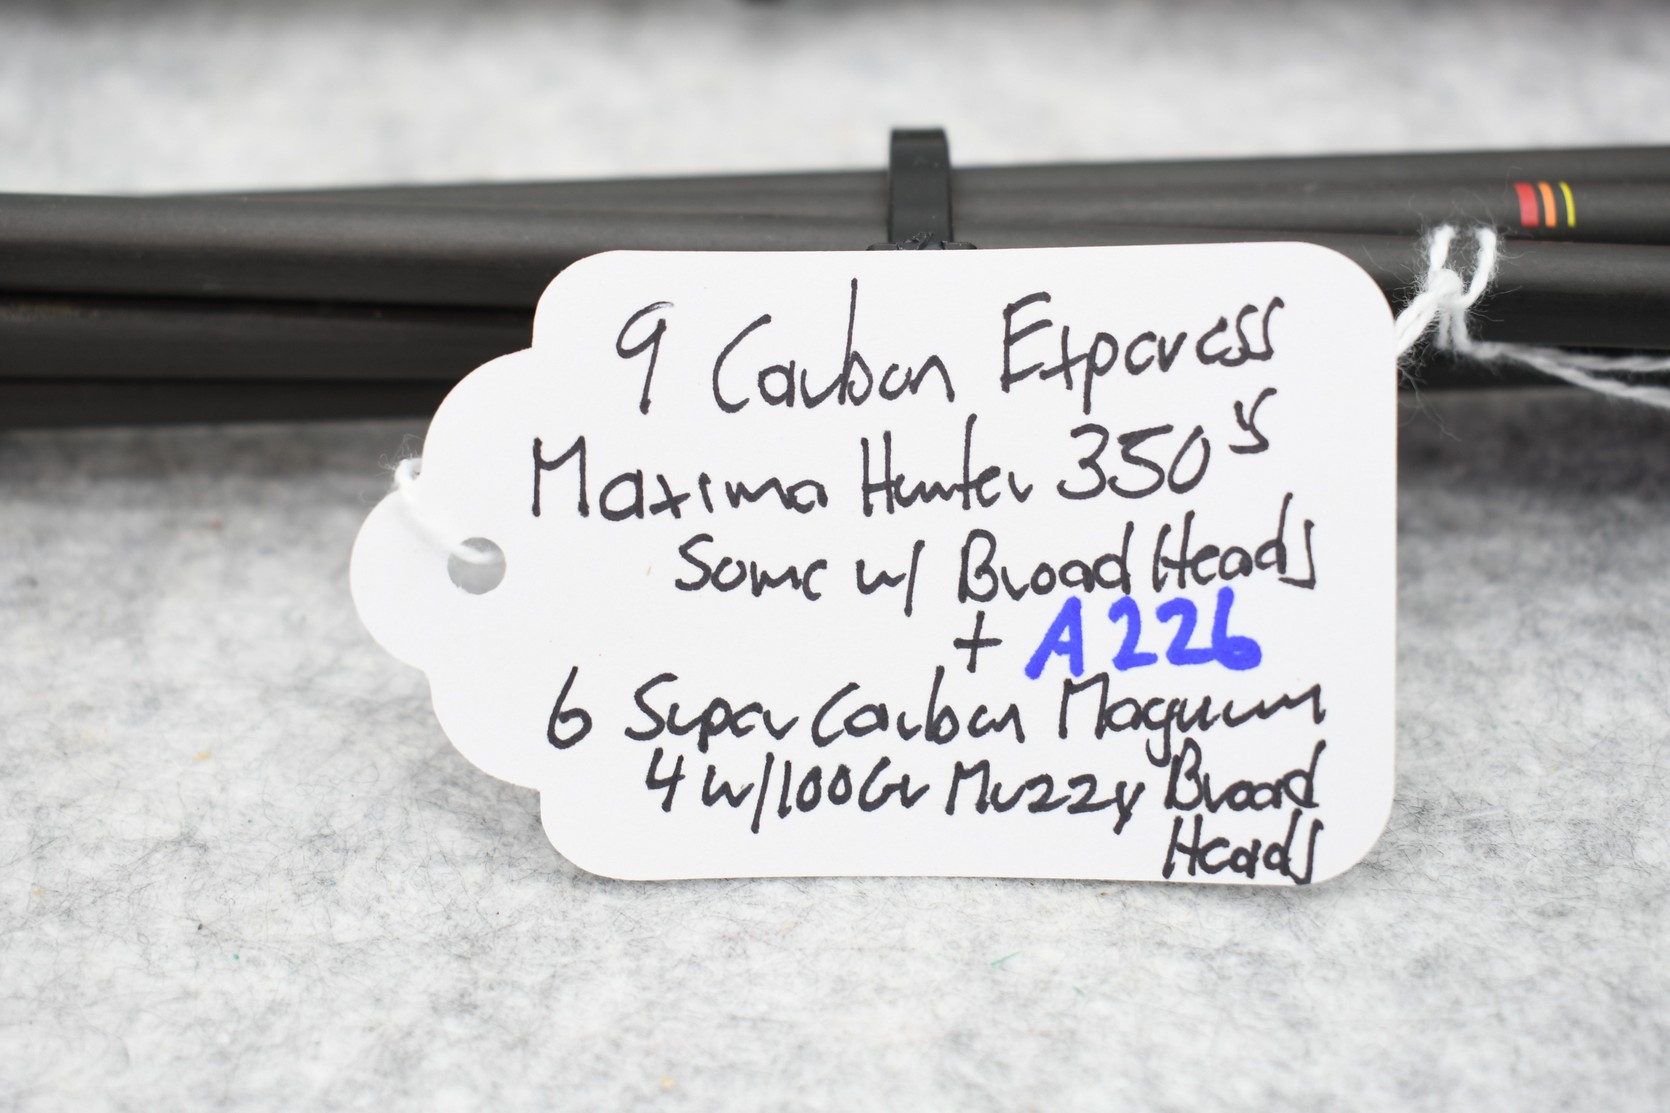 9 Carbon Express
Maxima Hunter 350s
Some w/ Broad Heads
+ A226
6 Super Carbon Magnum
4 w/100Gr Muzzy Broad
Heads